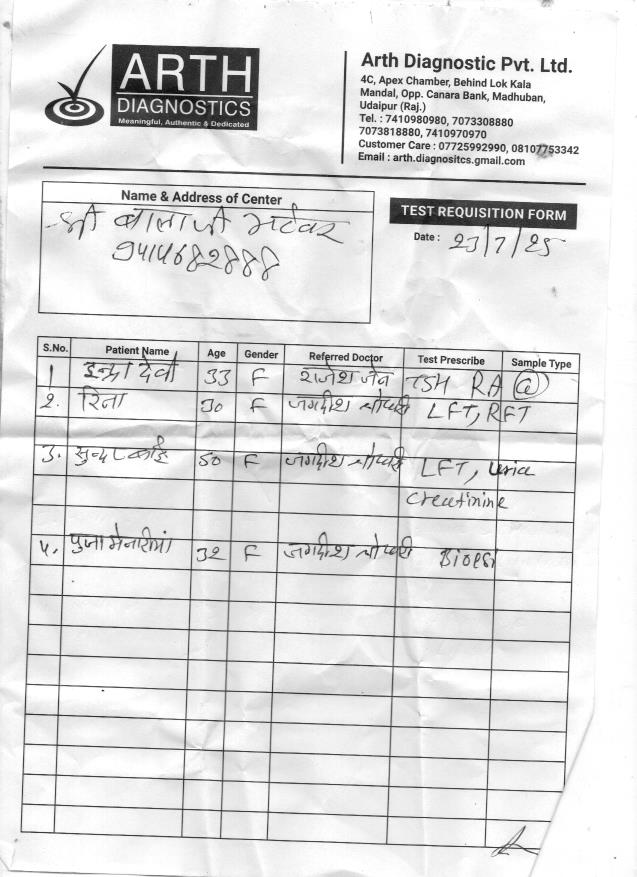 ARTH
DIAGNOSTICS
Meaningful, Authentic & Dedicated
Arth Diagnostic Pvt. Ltd.
4C, Apex Chamber, Behind Lok Kala
Mandal, Opp. Canara Bank, Madhuban,
Udaipur (Raj.)
Tel. : 7410980980, 7073308880
7073818880, 7410970970
Customer Care : 07725992990, 08107753342
Email : arth.diagnositcs.gmail.com
Name & Address of Center
श्री बालाजी भटेवर
9414682888
TEST REQUISITION FORM
Date : 23/7/25
S.No. Patient Name Age Gender Referred Doctor Test Prescribe Sample Type
1 इन्द्रा देवी 33 F राजेश जैन TSH RA
2. रिना 30 F जगदीश चौधरी LFT, RFT
3. सुन्दर बाई 50 F जगदीश चौधरी LFT, Uria
Creatinine
4. पुजा मेनारीयां 32 F जगदीश चौधरी Biopsi